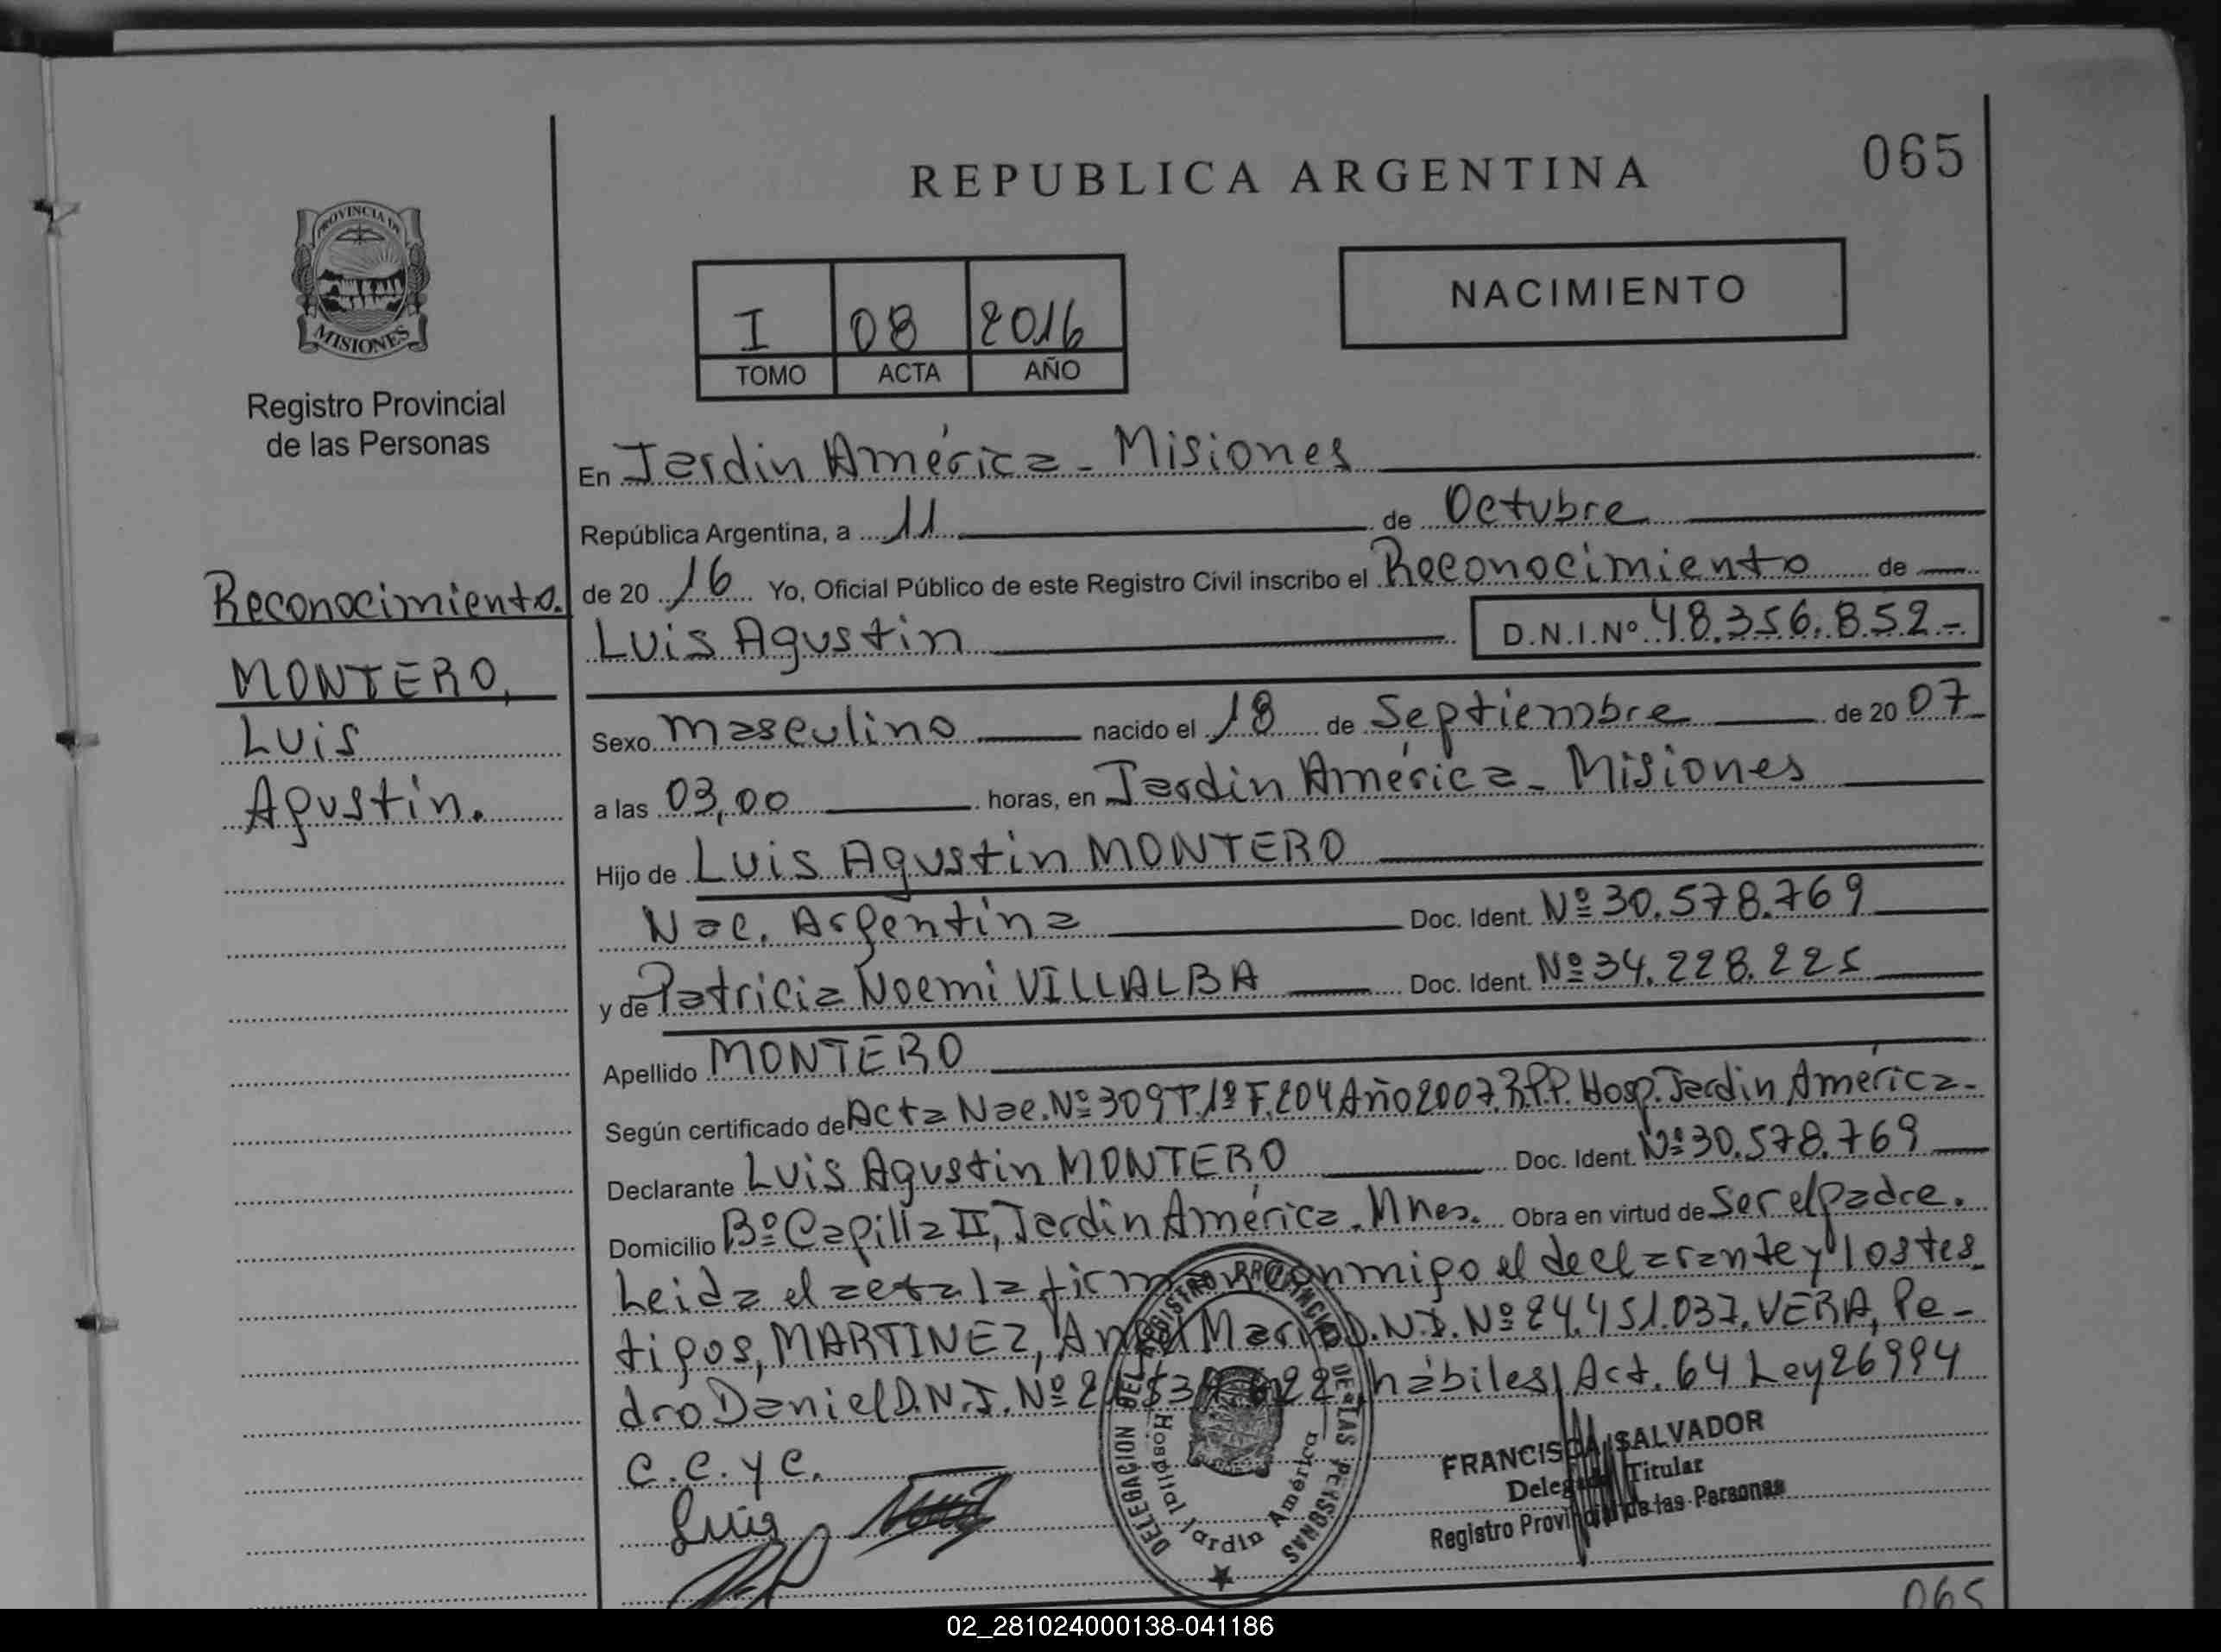 065
REPUBLICA ARGENTINA
PROVINCIA DE
MISIONES
Registro Provincial
de las Personas
I 08 2016
TOMO ACTA AÑO
NACIMIENTO
En Jardin América - Misiones
República Argentina, a 11 de Octubre
de 20 16 Yo, Oficial Público de este Registro Civil inscribo el Reconocimiento de
Luis Agustin D.N.I.Nº 48.356.852.-
Reconocimiento.
MONTERO,
Luis
Agustin.
Sexo masculino nacido el 18 de Septiembre de 20 07
a las 03,00 horas, en Jardin América - Misiones
Hijo de Luis Agustin MONTERO
Nac. Argentina Doc. Ident. Nº 30.578.769
y de Patricia Noemi VILLALBA Doc. Ident. Nº 34.228.225
Apellido MONTERO
Según certificado de Acta Nac. Nº 309 T.1º F.204 Año 2007. R.P.P. Hosp. Jardin América-
Declarante Luis Agustin MONTERO Doc. Ident. Nº 30.578.769
Domicilio Bº Capilla II, Jardin América - Mnes. Obra en virtud de Ser el padre.
Leida el acta la conmigo el declarante y los tes
tigos, MARTINEZ, D.N.I. Nº 24.451.037. VERA, Pe-
dro Daniel D.N.I. Nº hábiles, Act. 64 Ley 26994
C.C. y C.
Luis
DELEGACION DEL REGISTRO PROVINCIAL DE LAS PERSONAS
Hospital Jardin América
FRANCISCA SALVADOR
Delegada Titular
Registro Provincial de las Personas
065
02_281024000138-041186